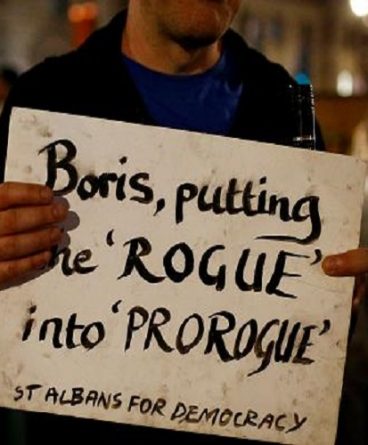 Boris, putting
he 'ROGUE'
into 'PROROGUE'
ST ALBANS FOR DEMOCRACY